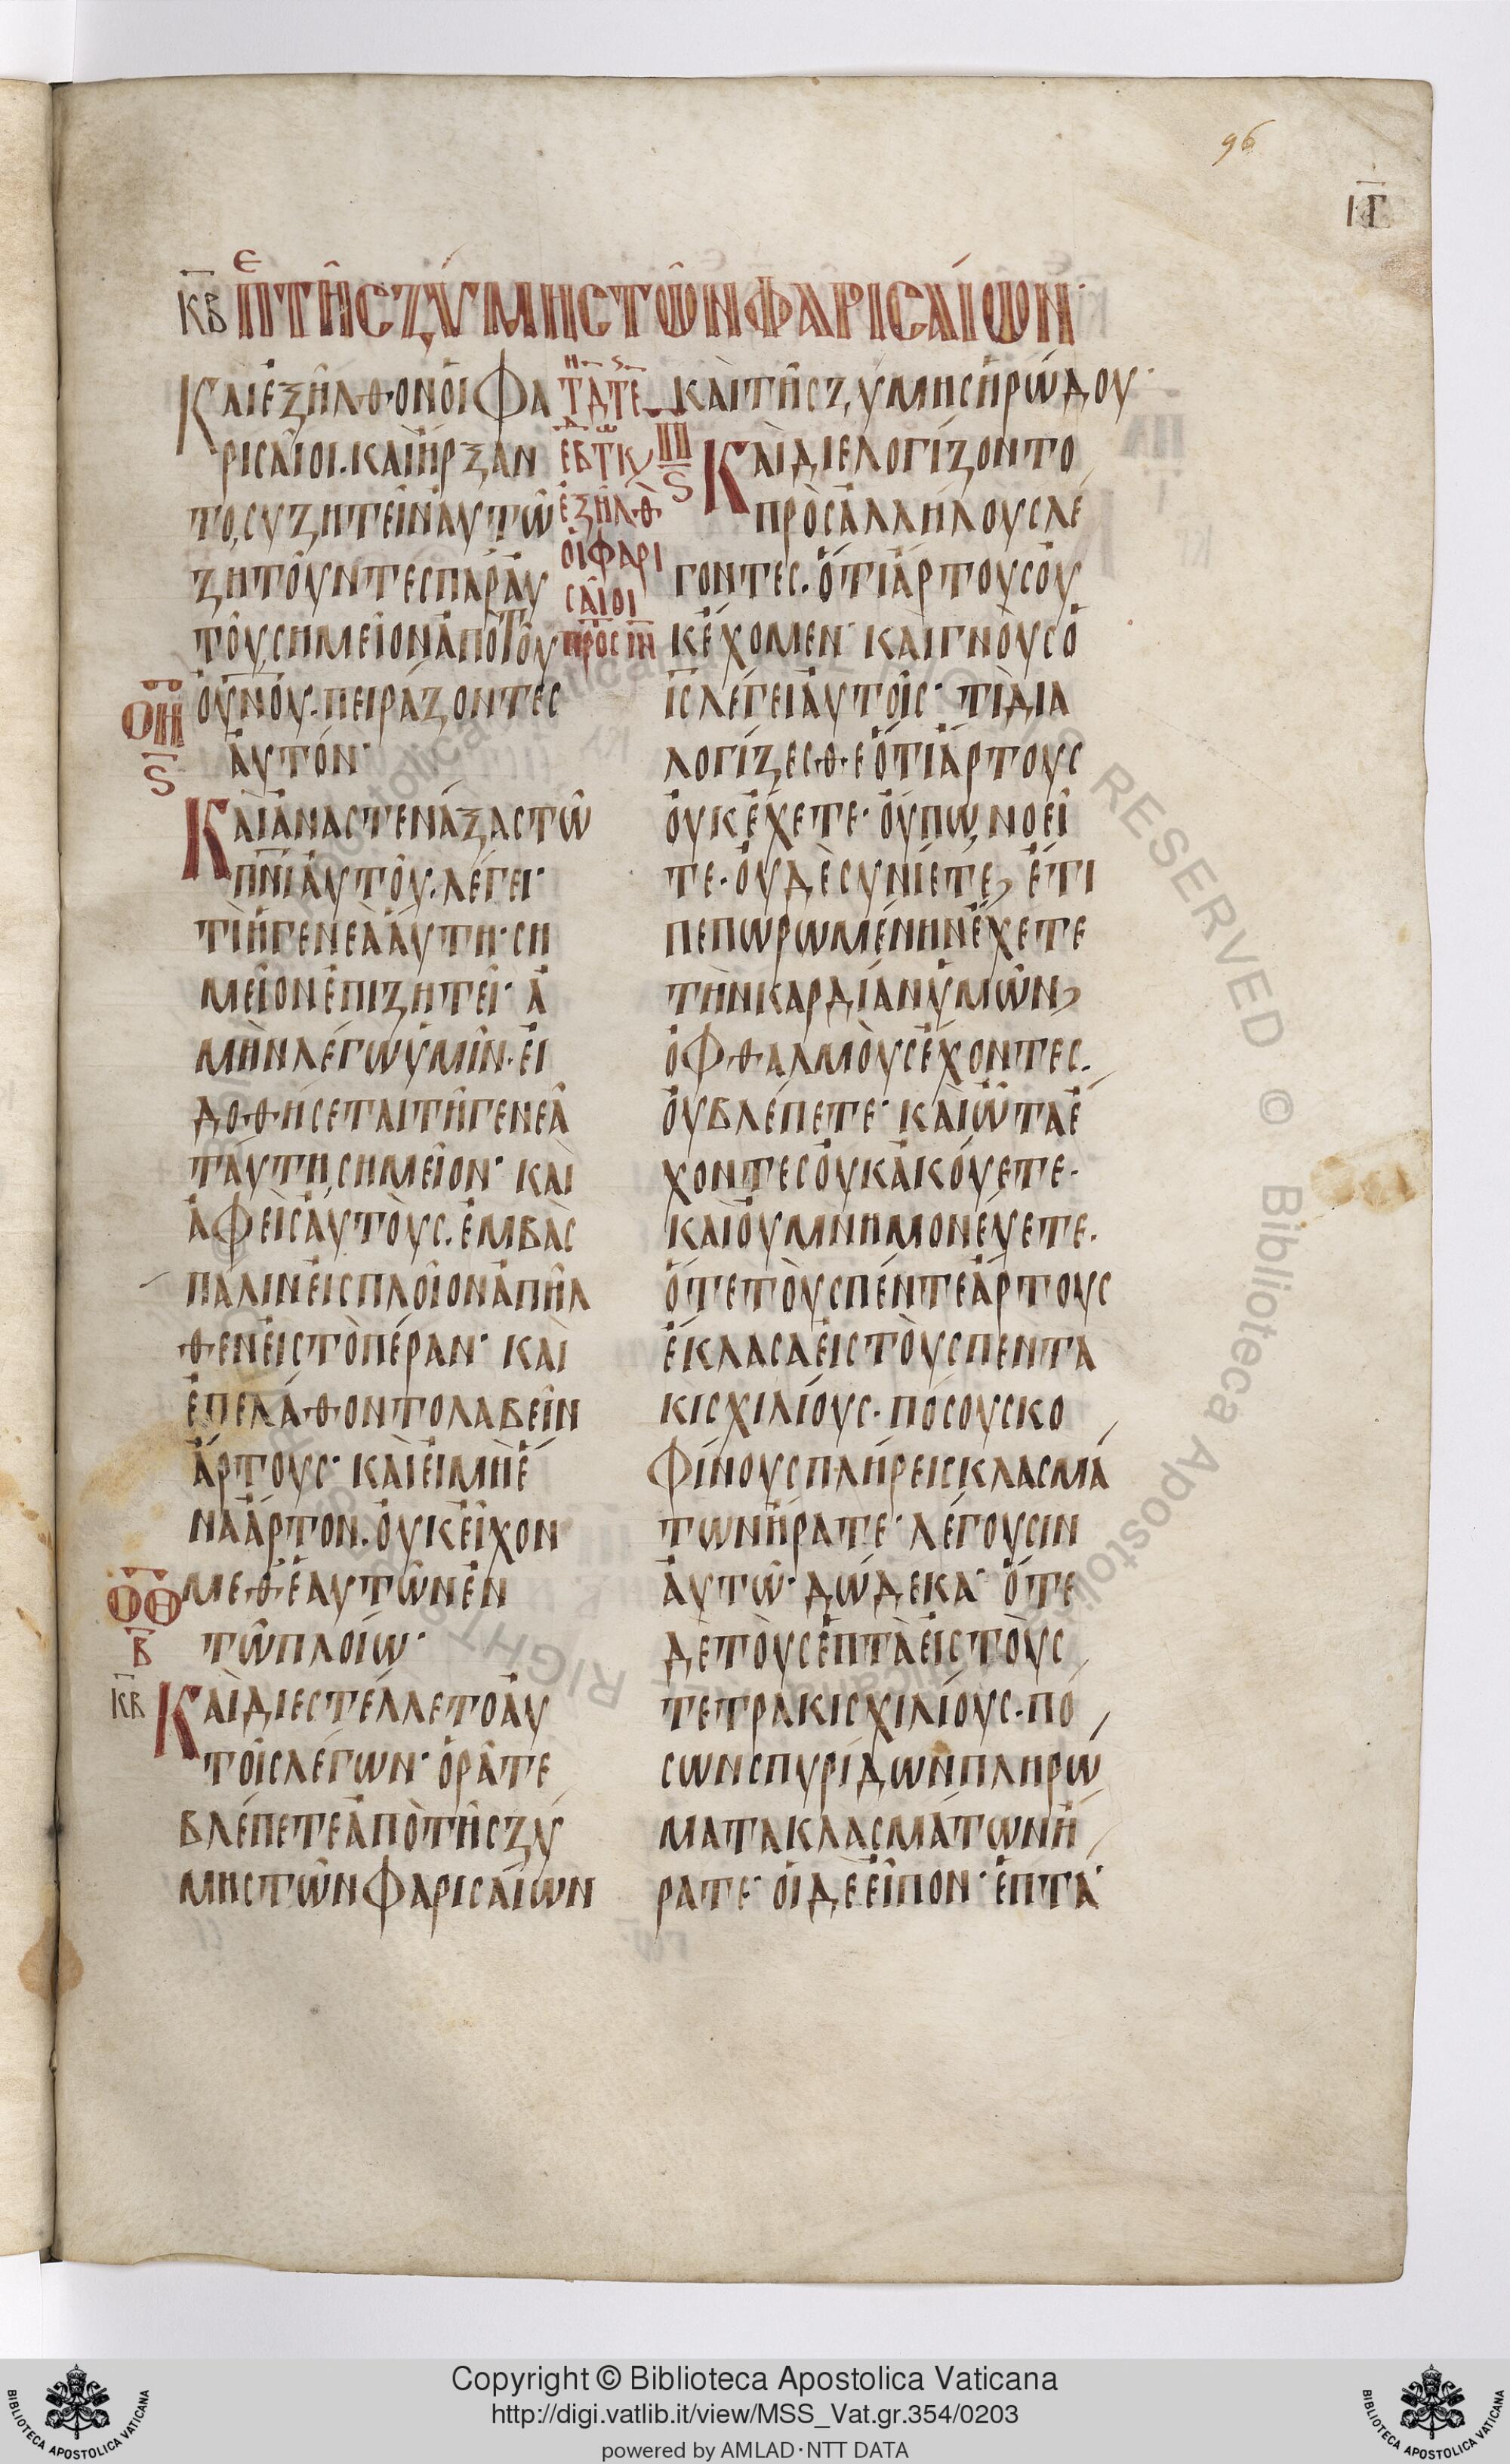 96
ΙΓ
ΚΒ ἘΠΤῆΣΖΎΜΗΣΤῶΝΦΑΡΙΣΑΊΩΝ·
Καὶἐξῆλθονοἱφα
ρισαῖοι. καὶἤρξαν
το, συζητεῖναὐτῶ
ζητοῦντεςπαρ᾽αὐ
τοῦ, σημεῖονἀπὸτοῦ
οὐ̅ν̅οῦ. πειράζοντες
αὐτόν·
ΟΗ
Ϛ
Καὶἀναστενάξαςτῶ
π̅ν̅ιαὐτοῦ. λέγει·
τίἡγενεὰαὕτη· ση
μεῖονἐπιζητεῖ· ἀ
μὴνλέγωὑμῖν· εἰ
δοθήσεταιτῆγενεᾶ
ταύτη, σημεῖον· καὶ
ἀφεὶςαὐτοὺς. ἐμβὰς
πάλινεἰςπλοῖονἀπῆλ
θενεἰςτὸπέραν· καὶ
ἐπελάθοντολαβεῖν
ἄρτους· καὶεἰμὴἕ
ναἄρτον. οὐκεῖχον
μεθ᾽ἑαυτῶνἐν
τῶπλοίω·
ΟΘ
Β
ΚΒ
Καὶδιεστέλλετοαὐ
τοῖςλέγων· ὁρᾶτε
βλέπετεἀπὸτῆςζύ
μηςτῶνφαρισαίων
ἐξῆλθ
οἱφαρι
σαῖοι
πρὸς ι̅ν̅
καὶτῆςζύμηςἡρώδου·
Π
Ϛ
Καὶδιελογίζοντο
πρὸςἀλλήλουςλέ
γοντες. ὅτιἄρτουςοὐ
κἔχομεν· καὶγνοὺςὁ
ι̅ς̅λέγειαὐτοῖς· τίδια
λογίζεσθεὅτιἄρτους
οὐκἔχετε· οὔπω, νοεῖ
τε· οὐδὲσυνίετε, ἔτι
πεπωρωμένηνἔχετε
τὴνκαρδίανὑμῶν,
ὀφθαλμοὺςἔχοντες.
οὐβλέπετε· καὶὦταἔ
χοντεςοὐκἀκούετε·
καὶοὐμνημονεύετε.
ὅτετοὺςπέντεἄρτους
ἔκλασαεἰςτοὺςπεντα
κισχιλίους· πόσουςκο
φίνουςπλήρειςκλασμά
τωνἤρατε· λέγουσιν
αὐτῶ· δώδεκα· ὅτε
δὲτοὺςἑπτὰεἰςτοὺς
τετρακισχιλίους· πό
σωνσπυρίδωνπληρώ
ματακλασμάτωνἤ
ρατε· οἱδὲεἶπον· ἑπτά·
ALL RIGHTS RESERVED © Biblioteca Apostolica Vaticana
Copyright © Biblioteca Apostolica Vaticana
http://digi.vatlib.it/view/MSS_Vat.gr.354/0203
powered by AMLAD·NTT DATA
BIBLIOTECA APOSTOLICA VATICANA
BIBLIOTECA APOSTOLICA VATICANA